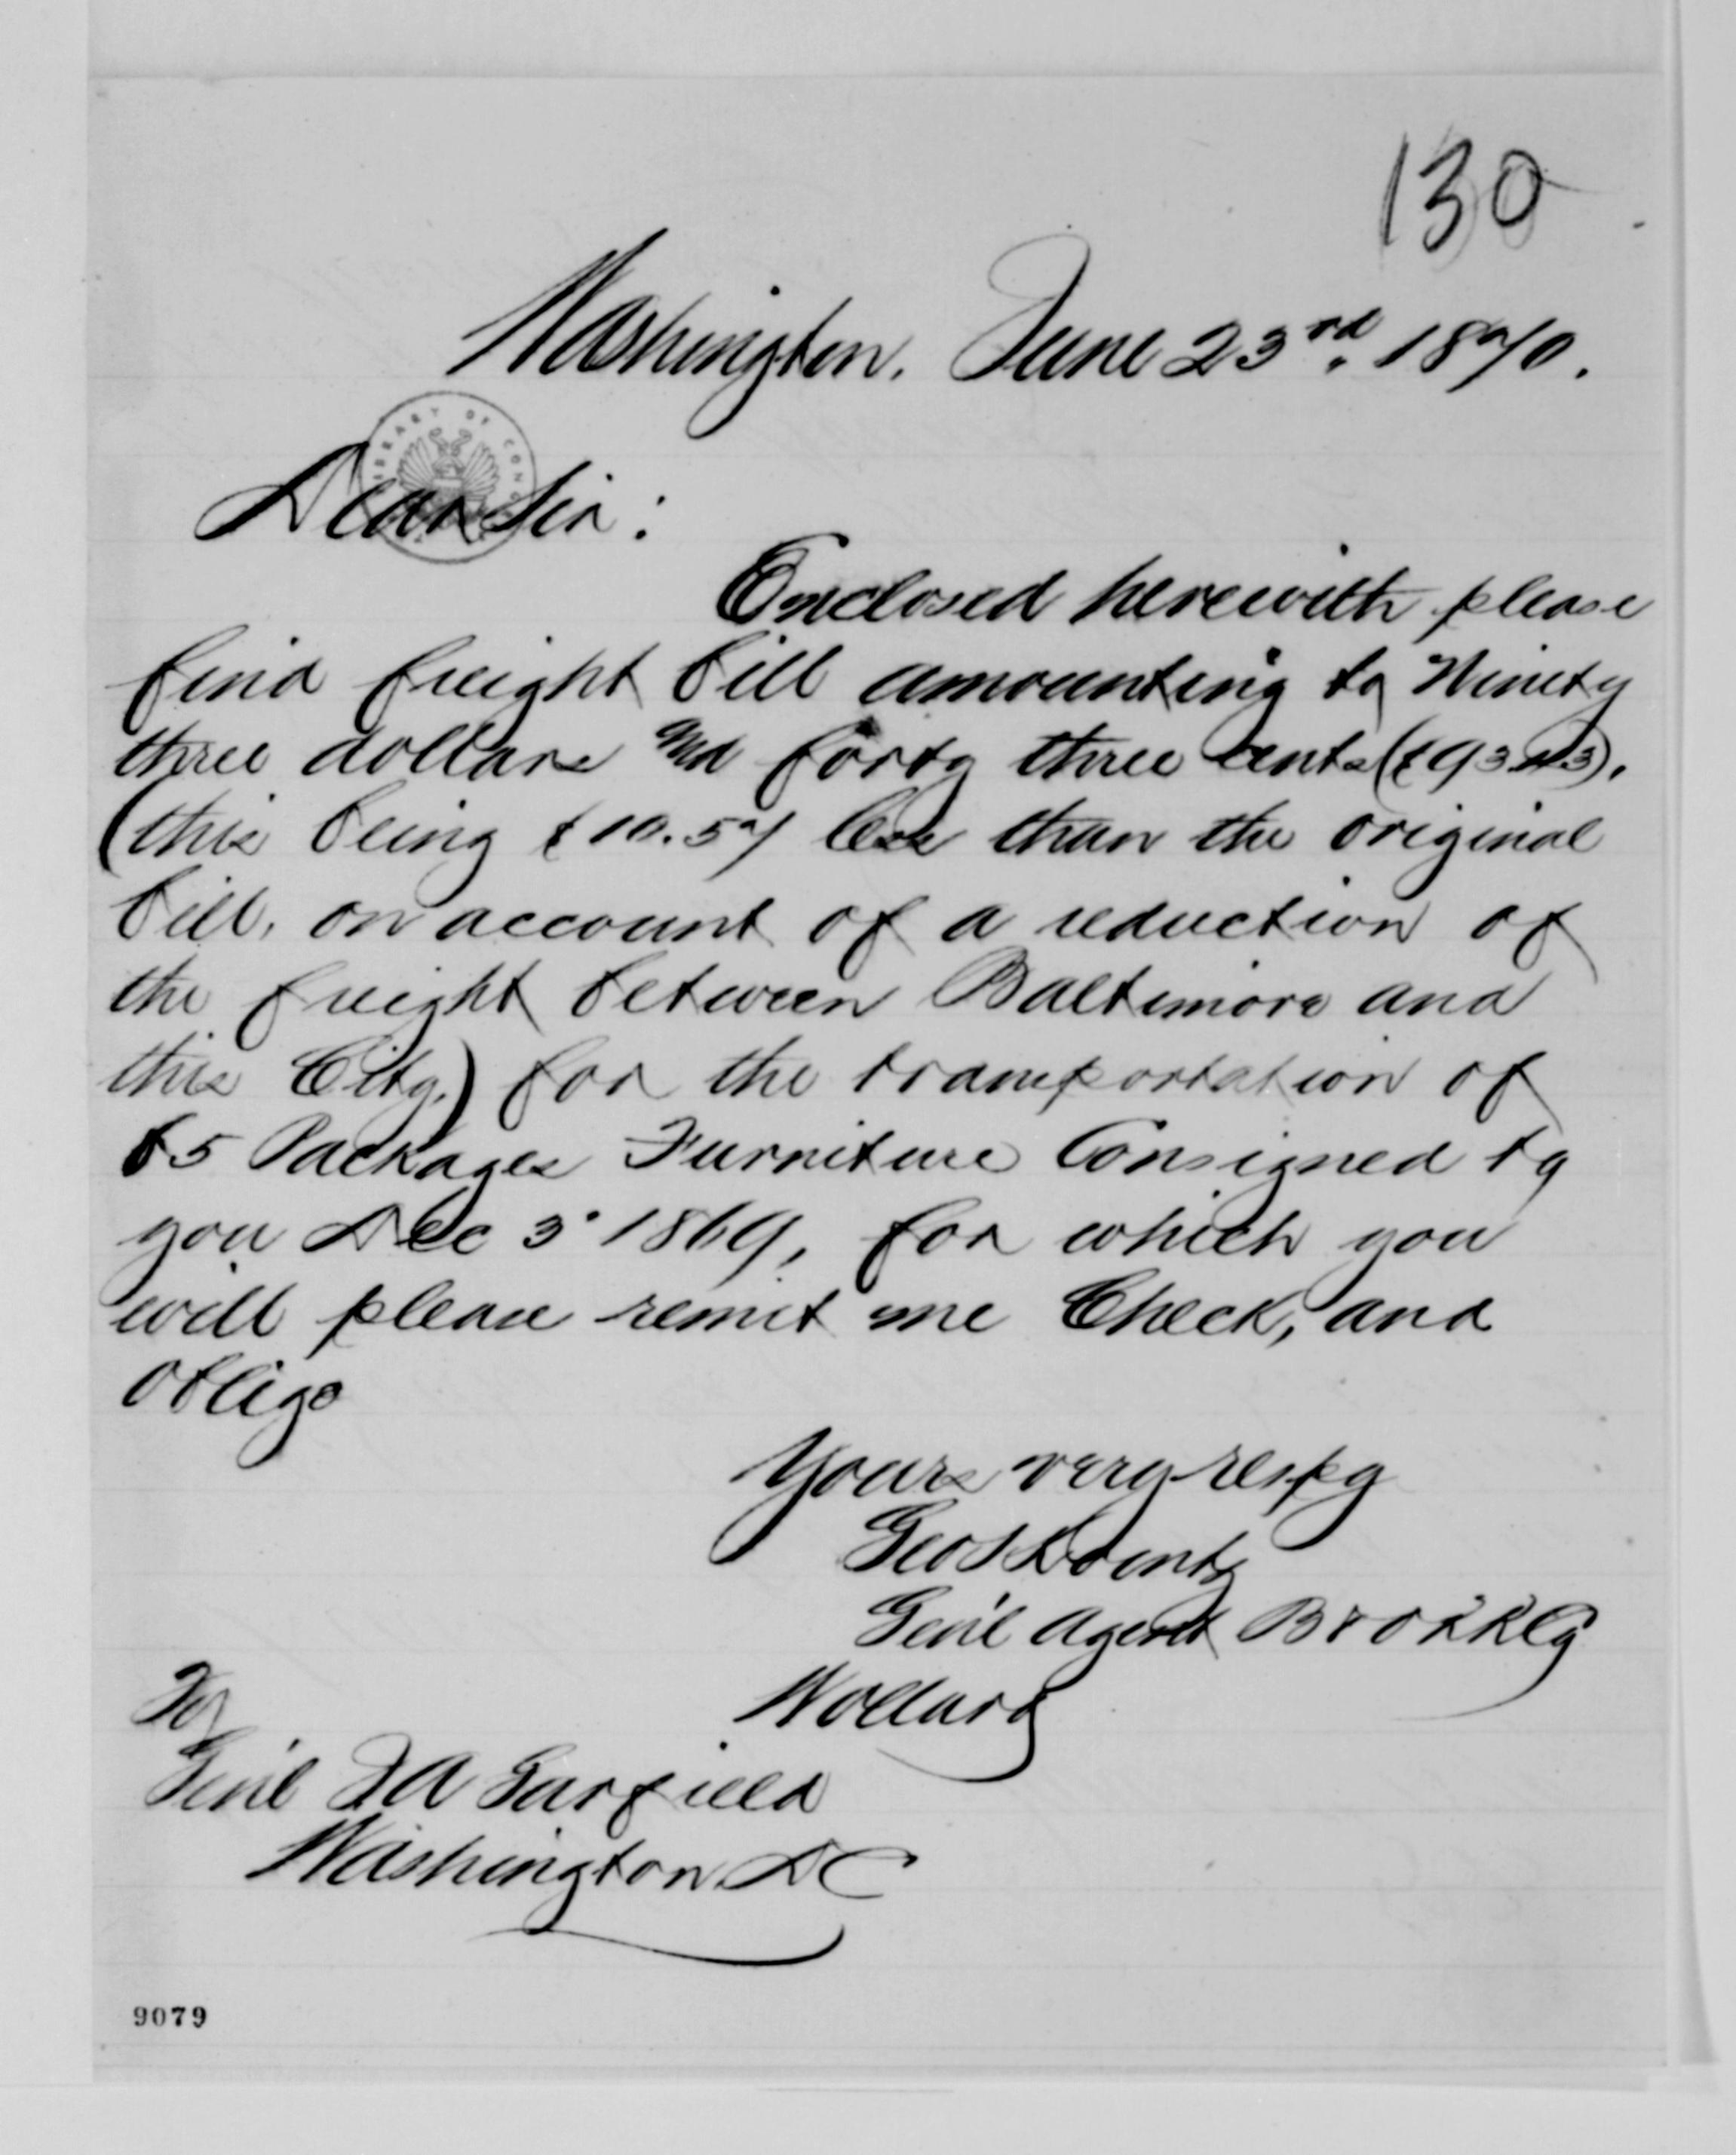 130
Washington. June 23rd. 1870.
LIBRARY OF CONG
Dear Sir:
Enclosed herewith please
find freight bill amounting to Ninety
three dollars and forty three cents ($93.43).
(this being $10.57 less than the original
bill, on account of a reduction of
the freight between Baltimore and
this City.) for the transportation of
65 Packages Furniture Consigned to
you Dec 3" 1869, for which you
will please remit me Check, and
oblige
Yours very respy
Geo S Koontz
Gen'l Agent B & O R R Co
To
Gen'l J A Garfield
Washington D C
9079